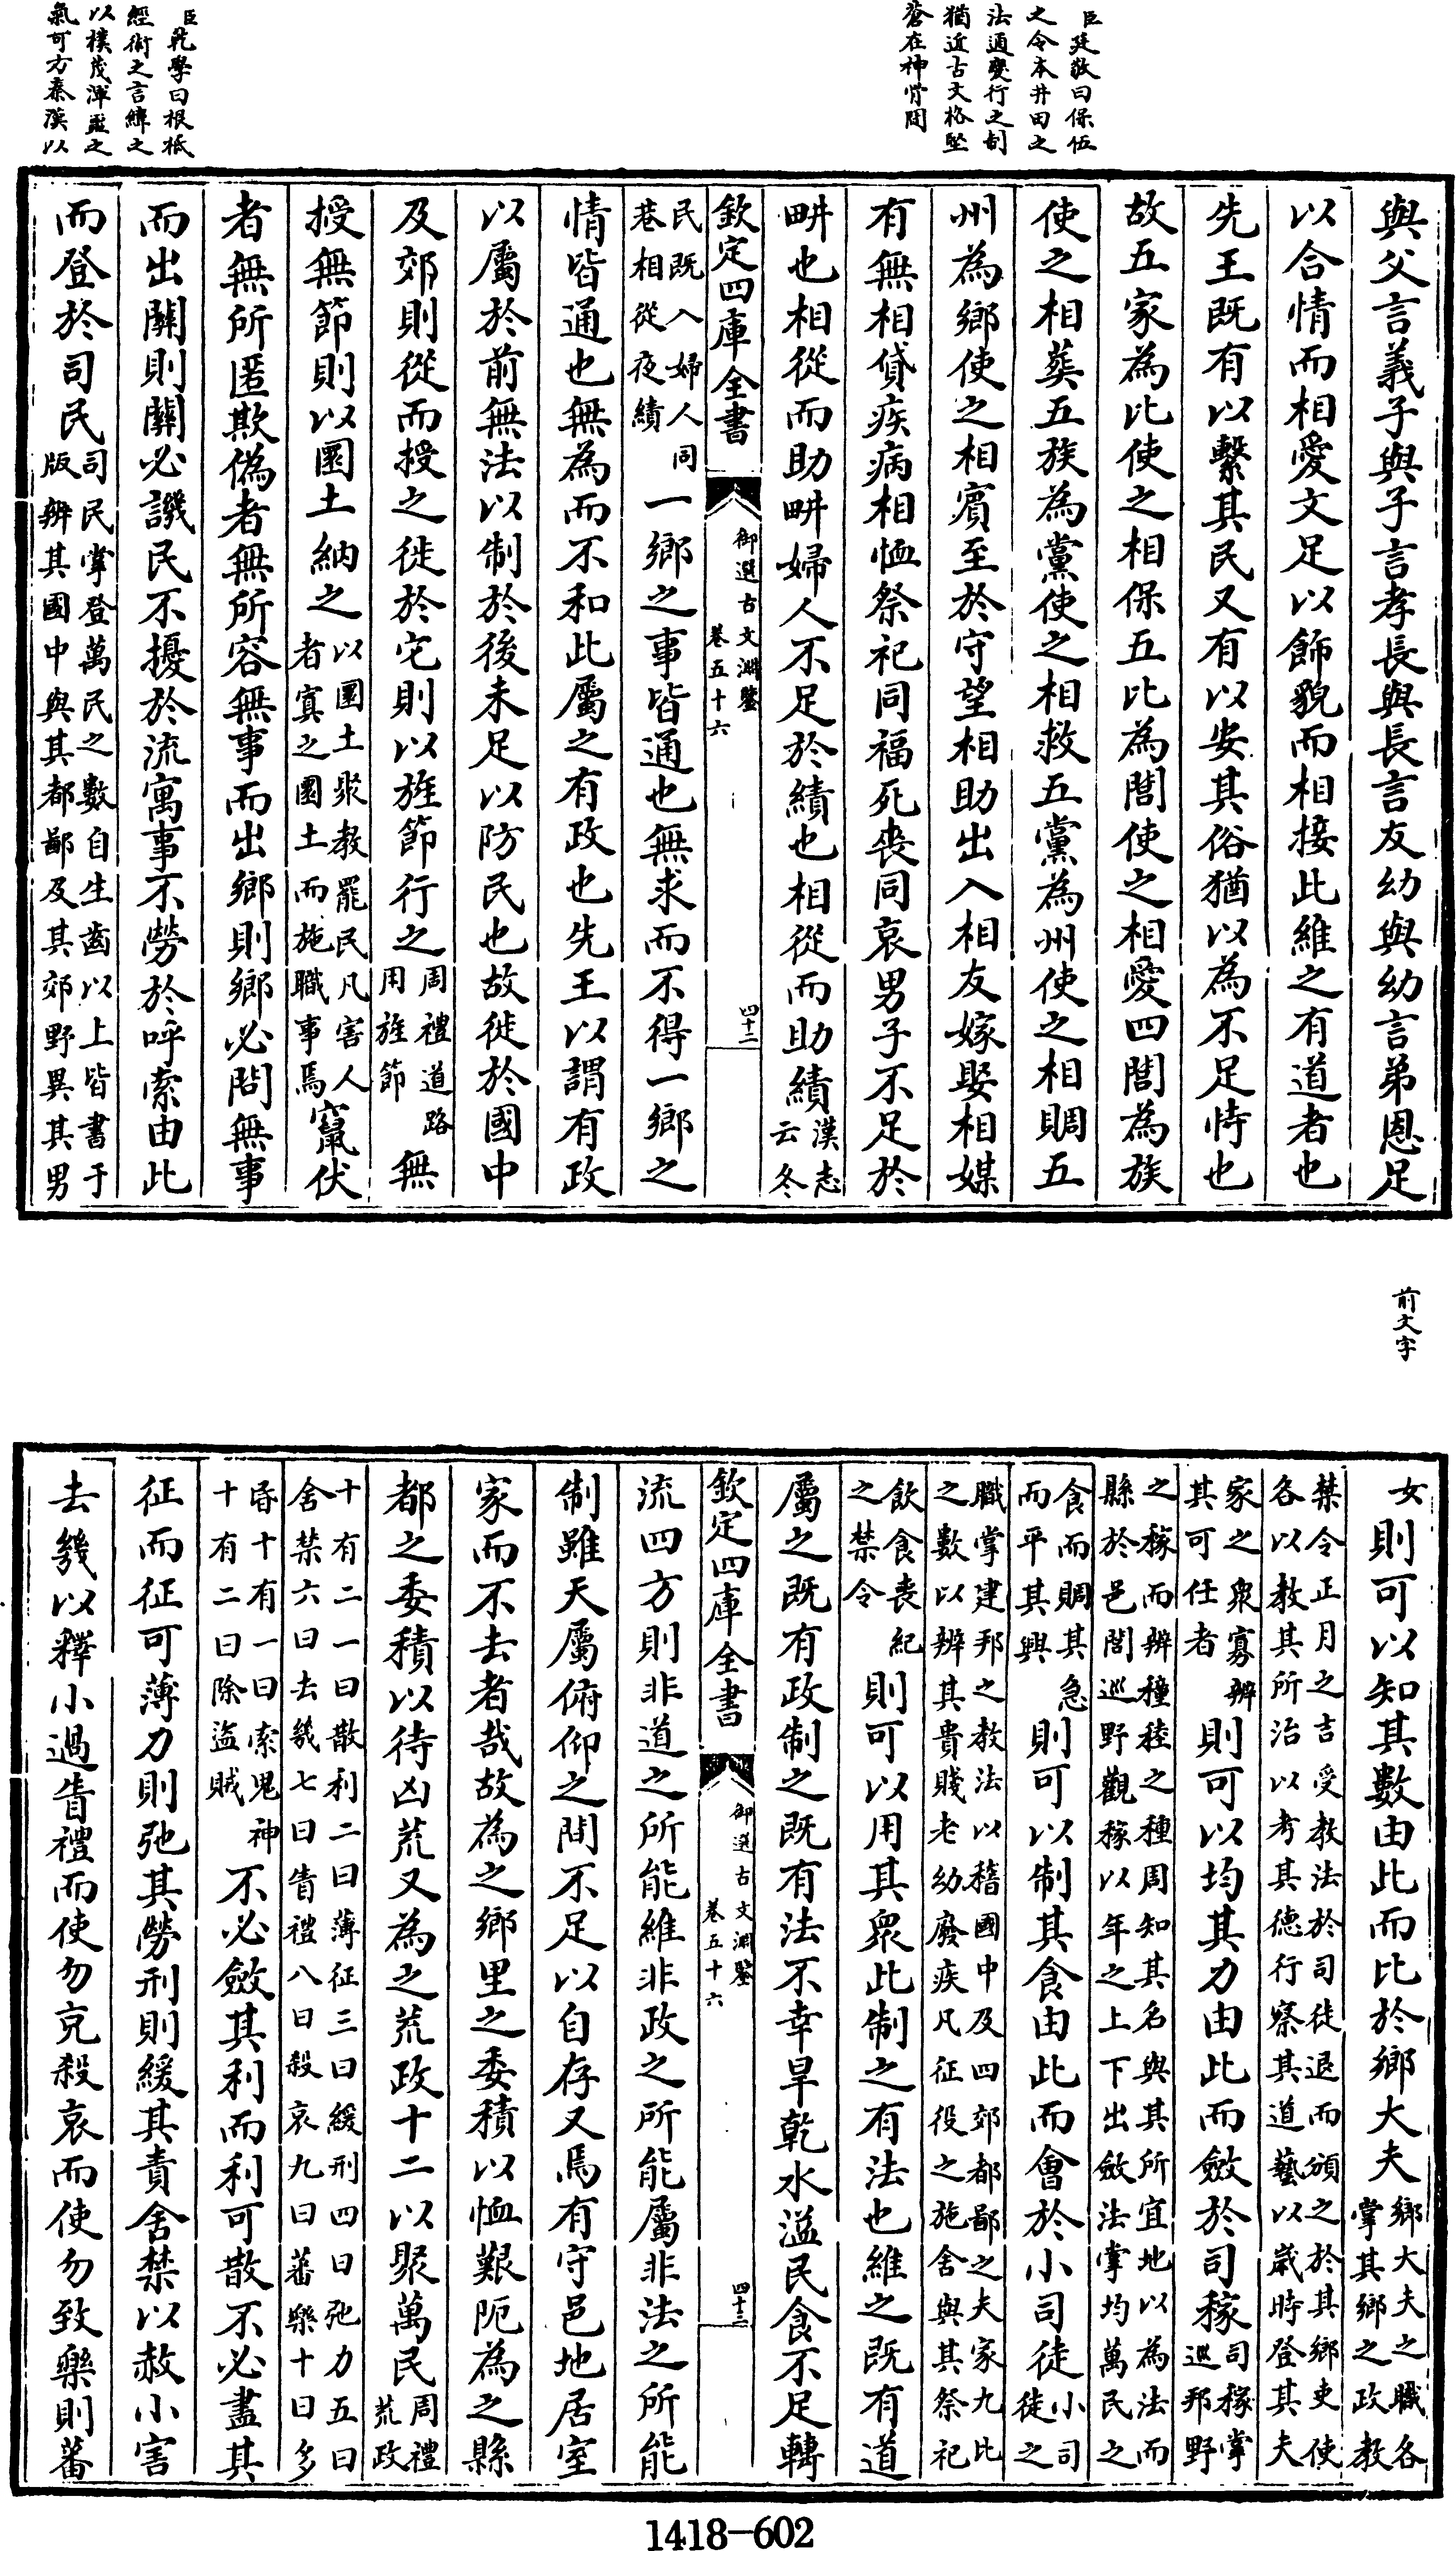 臣廷敬曰保伍
之令本井田之
法通變行之制
猶近古文格堅
蒼在神骨間
臣乾學曰根柢
經術之言緯之
以樸茂渾噩之
氣可方秦漢以
與父言義子與子言孝長與長言友幼與幼言弟恩足
以合情而相愛文足以飾貌而相接此維之有道者也
先王既有以繫其民又有以安其俗猶以為不足恃也
故五家為比使之相保五比為閭使之相愛四閭為族
使之相葬五族為黨使之相救五黨為州使之相賙五
州為鄉使之相賓至於守望相助出入相友嫁娶相媒
有無相貸疾病相恤祭祀同福死喪同哀男子不足於
畊也相從而助畊婦人不足於績也相從而助績漢志云冬
欽定四庫全書 御選古文淵鑒 卷五十六 四十二
民既入婦人同
巷相從夜績
一鄉之事皆通也無求而不得一鄉之
情皆通也無為而不和此屬之有政也先王以謂有政
以屬於前無法以制於後未足以防民也故徙於國中
及郊則從而授之徙於宅則以旌節行之周禮道路用旌節無
授無節則以圜土納之以圜土聚教罷民凡害人者寘之圜土而施職事焉竄伏
者無所匿欺偽者無所容無事而出鄉則鄉必問無事
而出關則關必譏民不擾於流寓事不勞於呼索由此
而登於司民司民掌登萬民之數自生齒以上皆書于版辨其國中與其都鄙及其郊野異其男
前文字
女則可以知其數由此而比於鄉大夫鄉大夫之職各掌其鄉之政教
禁令正月之吉受教法於司徒退而頒之於其鄉吏使
各以教其所治以考其德行察其道藝以歲時登其夫
家之衆寡辨其可任者則可以均其力由此而斂於司稼司稼掌巡邦野
之稼而辨穜稑之種周知其名與其所宜地以為法而
縣於邑閭巡野觀稼以年之上下出斂法掌均萬民之
食而賙其急而平其興則可以制其食由此而會於小司徒小司徒之
職掌建邦之教法以稽國中及四郊都鄙之夫家九比
之數以辨其貴賤老幼廢疾凡征役之施舍與其祭祀
飲食喪紀之禁令則可以用其衆此制之有法也維之既有道
屬之既有政制之既有法不幸旱乾水溢民食不足轉
欽定四庫全書 御選古文淵鑒 卷五十六 四十三
流四方則非道之所能維非政之所能屬非法之所能
制雖天屬俯仰之間不足以自存又焉有守邑地居室
家而不去者哉故為之鄉里之委積以恤艱阨為之縣
都之委積以待凶荒又為之荒政十二以聚萬民周禮荒政
十有二一曰散利二曰薄征三曰緩刑四曰弛力五曰
舍禁六曰去幾七曰眚禮八曰殺哀九曰蕃樂十曰多
昏十有一曰索鬼神十有二曰除盜賊不必斂其利而利可散不必盡其
征而征可薄力則弛其勞刑則緩其責舍禁以赦小害
去幾以釋小過眚禮而使勿克殺哀而使勿致樂則蕃
1418—602